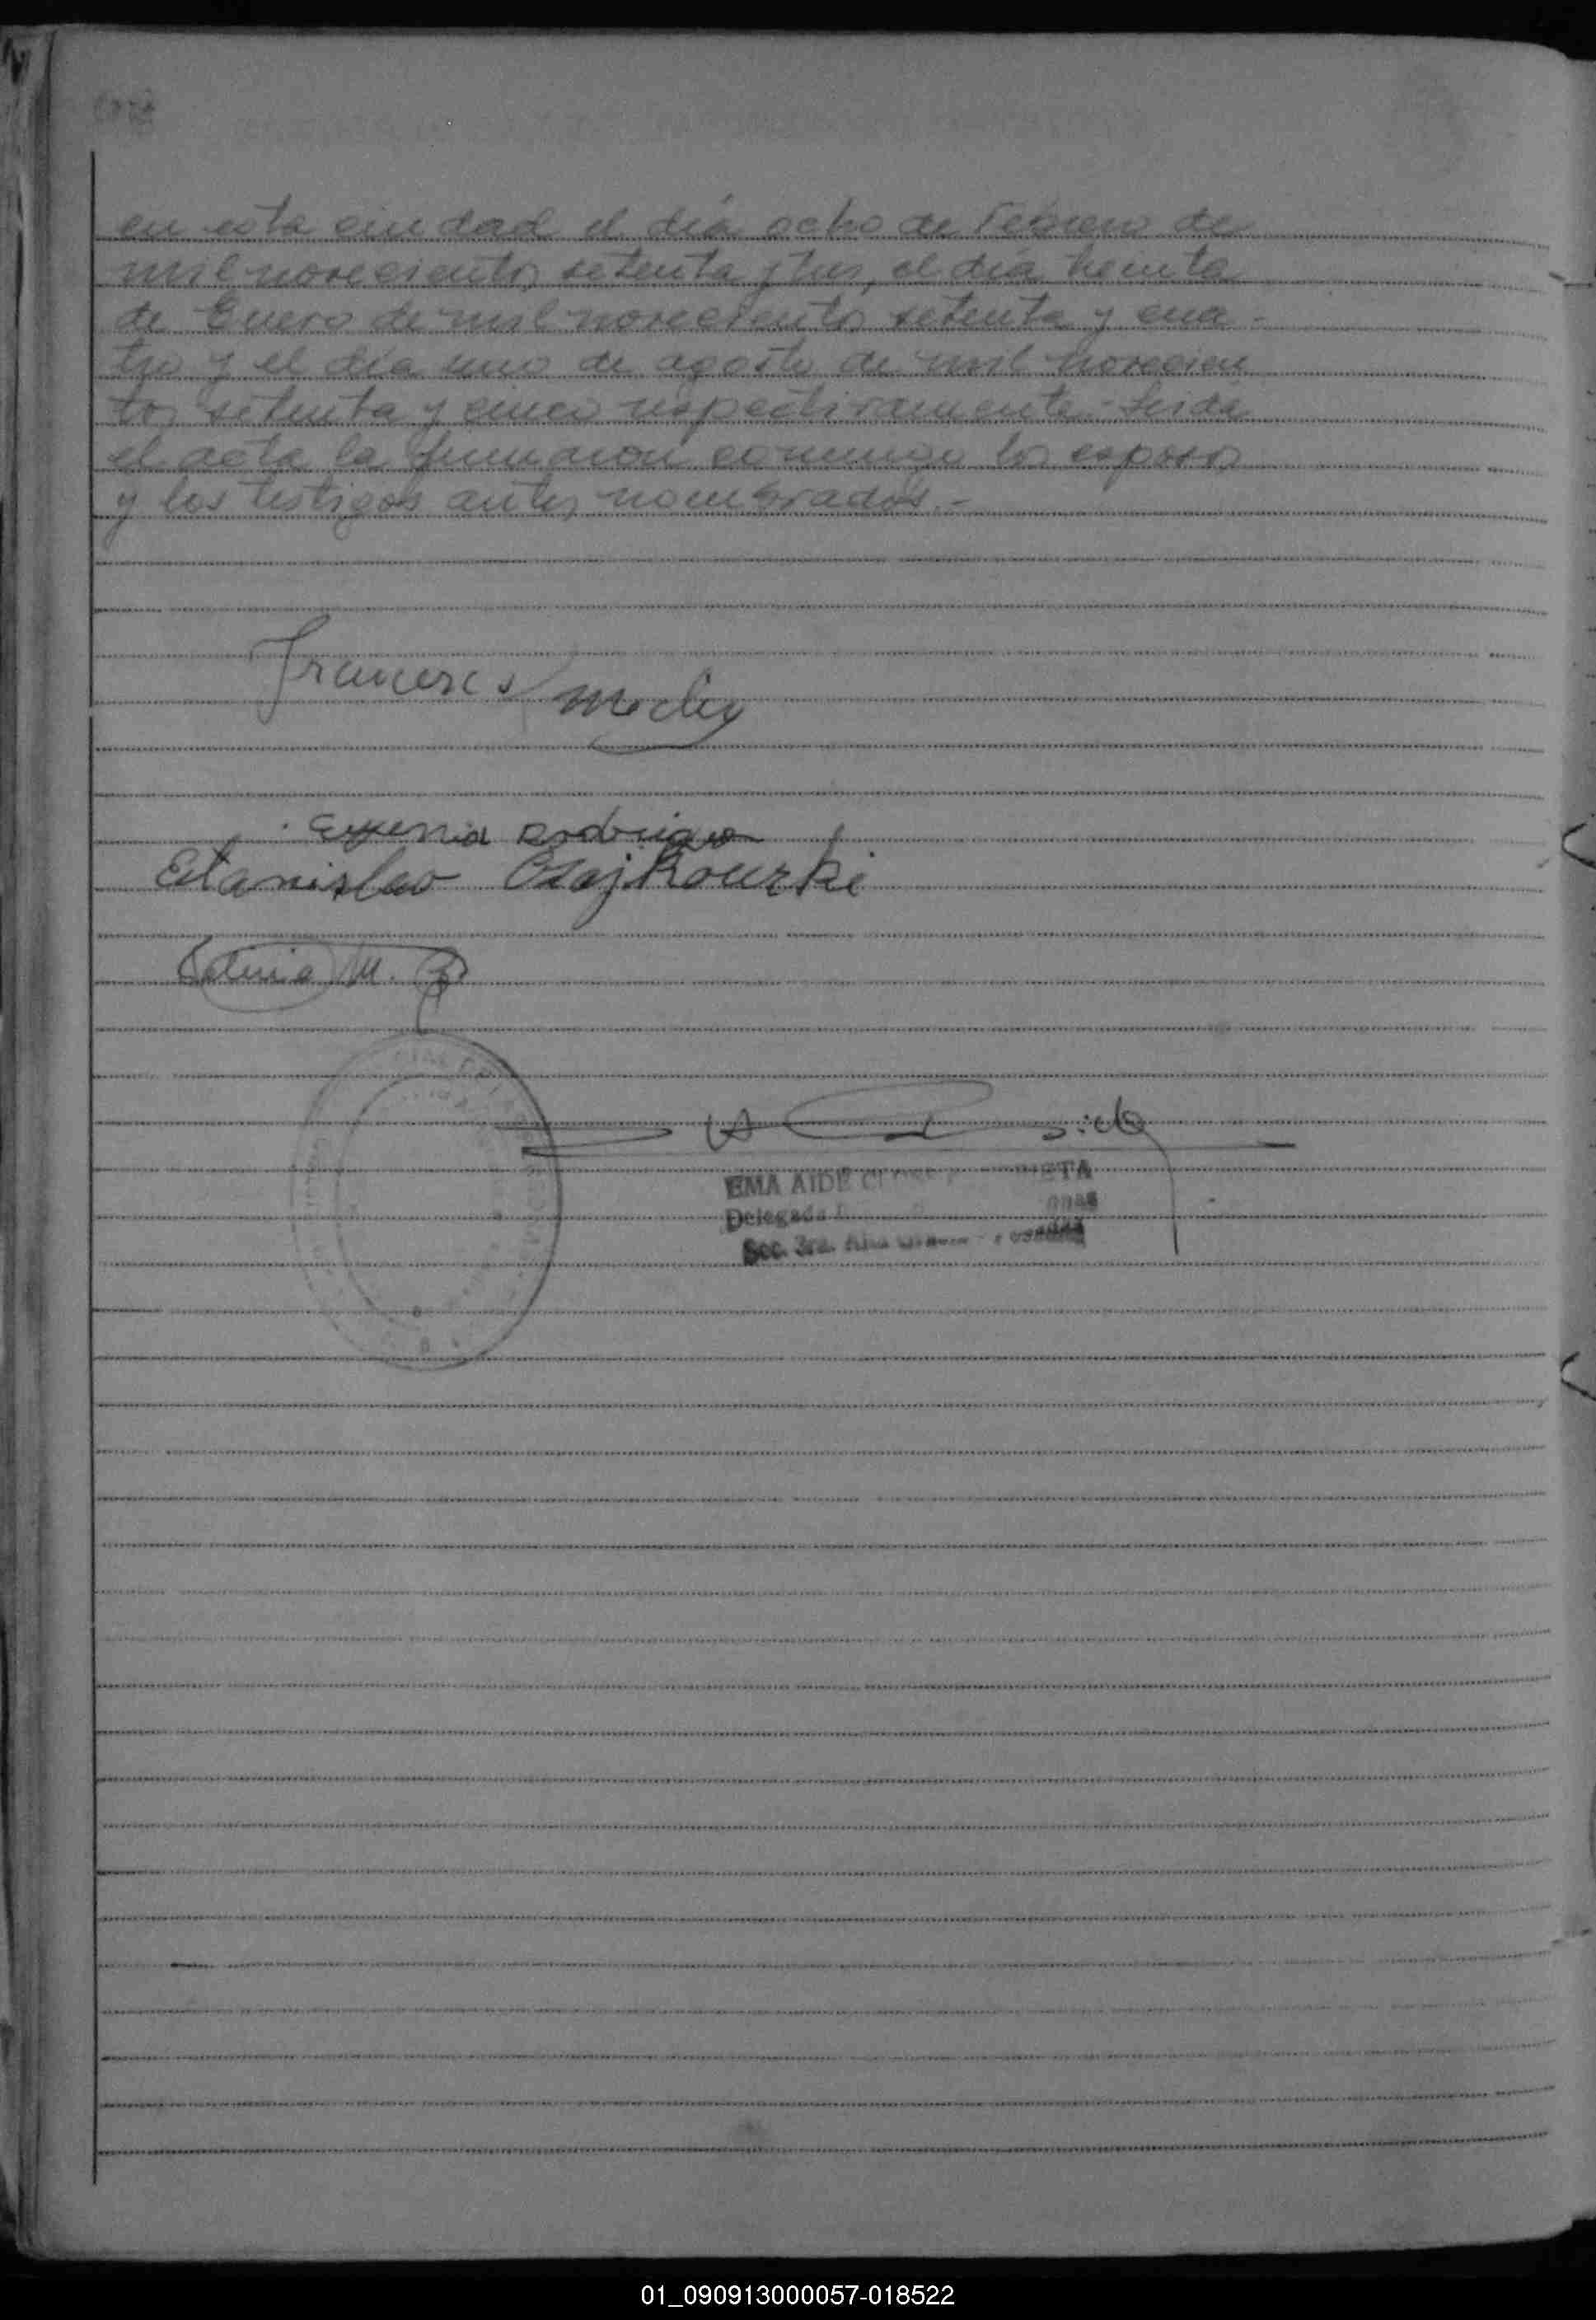 en esta ciudad el día ocho de Febrero de
mil novecientos setenta y tres, el día treinta
de Enero de mil novecientos setenta y cua-
tro y el día uno de agosto de mil novecien
tos setenta y cinco respectivamente.- Leida
el acta la firmaron conmigo los esposos
y los testigos antes nombrados.-
Francisco
Eugenia Rodrigue
Estanislao Czajkourki
M.
EMA AIDE
Delegada
Sec. 3ra.
01_090913000057-018522